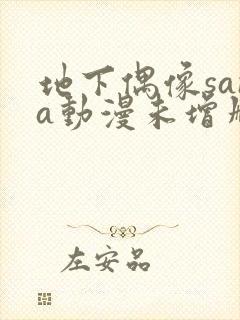 地下偶像sa
a動漫未增
左安品